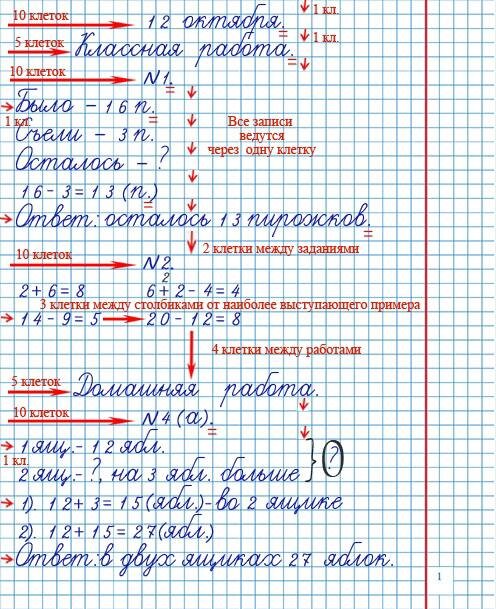 10 клеток 12 октября. 1 кл.
5 клеток Классная работа. 1 кл.
10 клеток N1.
Было – 16 п.
1 кл. Съели – 3 п. Все записи
ведутся
Осталось – ? через одну клетку
16 – 3 = 13 (п.)
Ответ: осталось 13 пирожков.
2 клетки между заданиями
10 клеток N2.
2
2 + 6 = 8 6 + 2 – 4 = 4
3 клетки между столбиками от наиболее выступающего примера
14 – 9 = 5 20 – 12 = 8
4 клетки между работами
5 клеток Домашняя работа.
10 клеток N4 (а).
1 ящ. – 12 ябл.
1 кл. } ?
2 ящ. – ?, на 3 ябл. больше
1). 12 + 3 = 15 (ябл.) – во 2 ящике
2). 12 + 15 = 27 (ябл.)
Ответ: в двух ящиках 27 яблок.
1